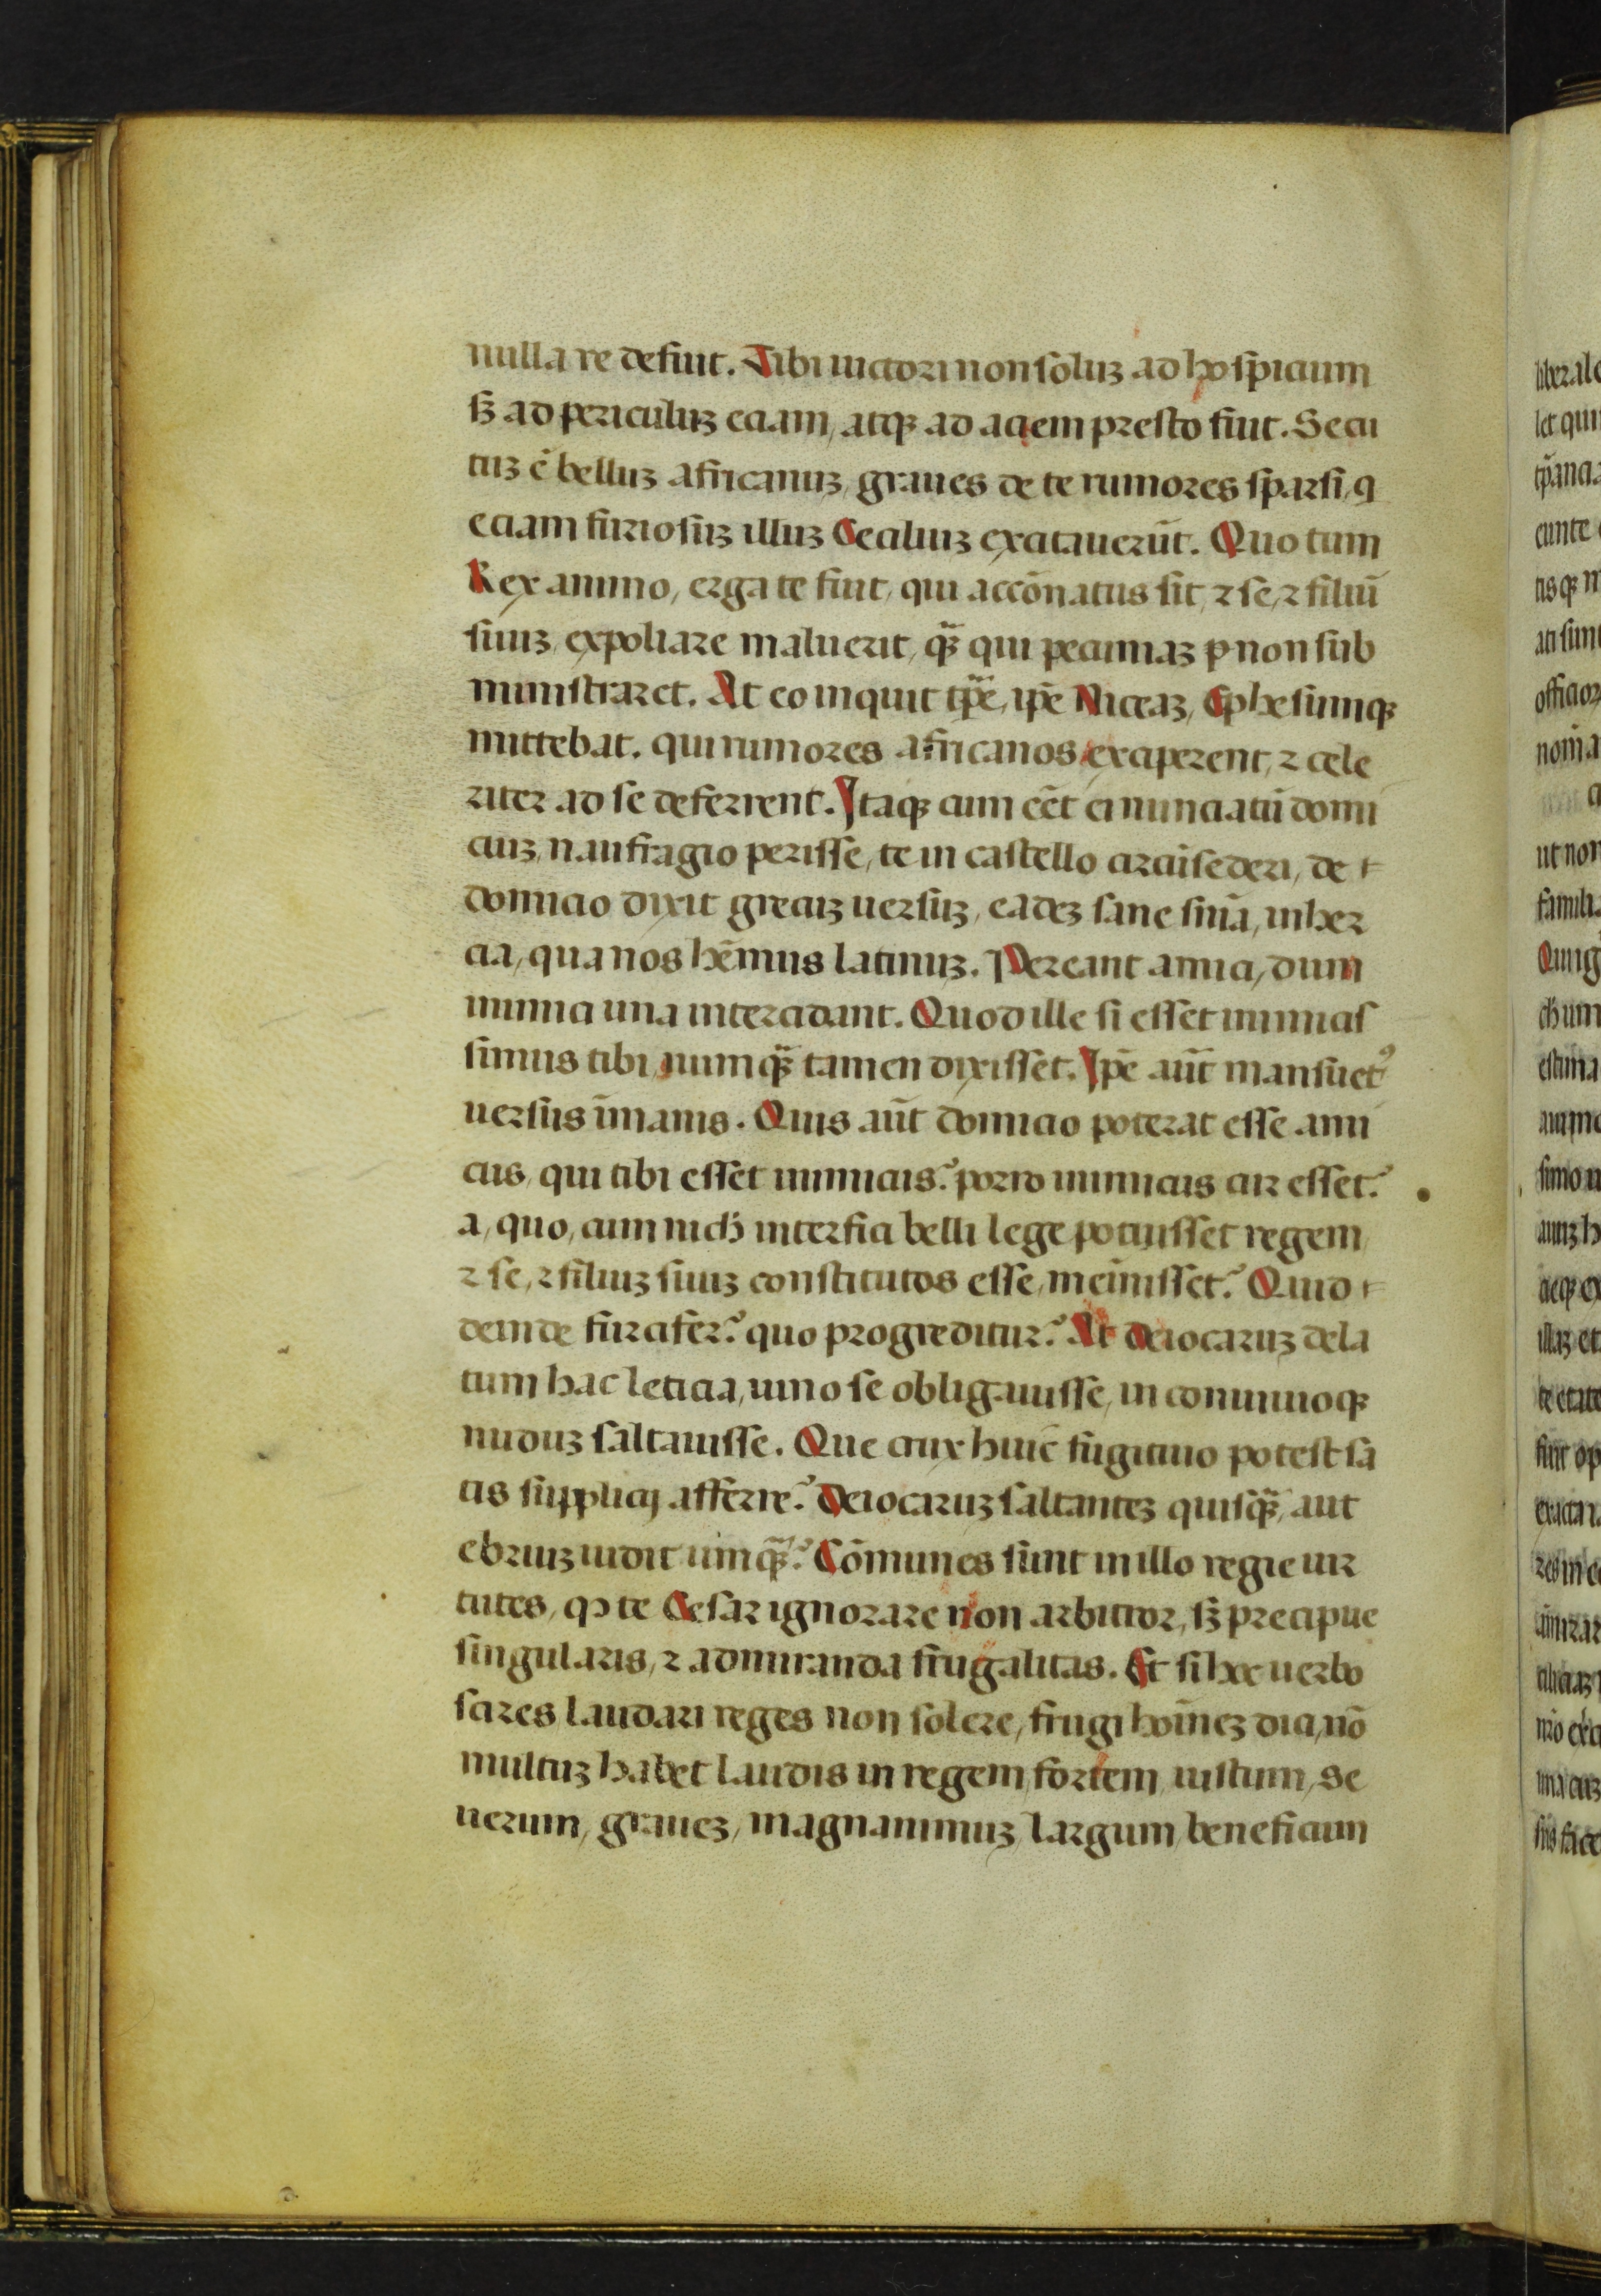 nulla re defuit. Tibi uictori non soluꝫ ad hospicium
sꝫ ad periculuꝫ eciam, atqꝫ ad aciem presto fuit. Secu
tuꝫ ē belluꝫ africanuꝫ, graues de te rumores sparsi, q
eciam furiosuꝫ illuꝫ Ceciliuꝫ excitauerūt. Quo tum
Rex animo, erga te fuit, qui accōnatus sit, ⁊ se, ⁊ filiū
suuꝫ, expoliare maluerit, qꝫ̄ qui pecuniaꝫ ꝑ non sub
ministraret. At eo inquit tꝑe, ip̄e Niceaꝫ, Ephesiumqꝫ
mittebat. qui rumores africanos exciperent, ⁊ cele
riter ad se deferrent. Itaqꝫ cum eēt ei nunciatū domi
ciuꝫ, naufragio perisse, te in castello circūsederi, de
domicio dixit grecuꝫ uersuꝫ, eadeꝫ sane sn̄ia, inher
cia, qua nos hēmus latinuꝫ. Pereant amici, dum
inimici una intercidant. Quod ille si esset inimicis
simus tibi, numqꝫ̄ tamen dixisset. Ip̄e aūt mansuetꝰ
uersus īmanis. Quis aūt domicio poterat esse ami
cus, qui tibi esset inimicus? porro inimicus cur esset?
a, quo, cum uich̄ interfici belli lege potuisset regem
⁊ se, ⁊ filiuꝫ suuꝫ constitutos esse, meīnisset? Quid
deinde furcifer? quo progreditur? At deiocaruꝫ dela
tum hac leticia, uino se obligauisse, in conuiuioqꝫ
nuduꝫ saltauisse. Que crux huic̄ fugitiuo potest sa
tis supplicij afferre? Deiocaruꝫ saltanteꝫ quisqꝫ̄, aut
ebriuꝫ uidit umqꝫ̄? Cōmunes sunt in illo regie uir
tutes, qͻ te Cesar ignorare non arbitror, sꝫ precipue
singularis, ⁊ admiranda frugalitas. Et si hoc uerbo
scires laudari reges non solere, frugi hoīneꝫ dici, nō
multuꝫ habet laudis in regem, fortem, iustum, se
uerum, graueꝫ, magnanimuꝫ, largum, beneficum